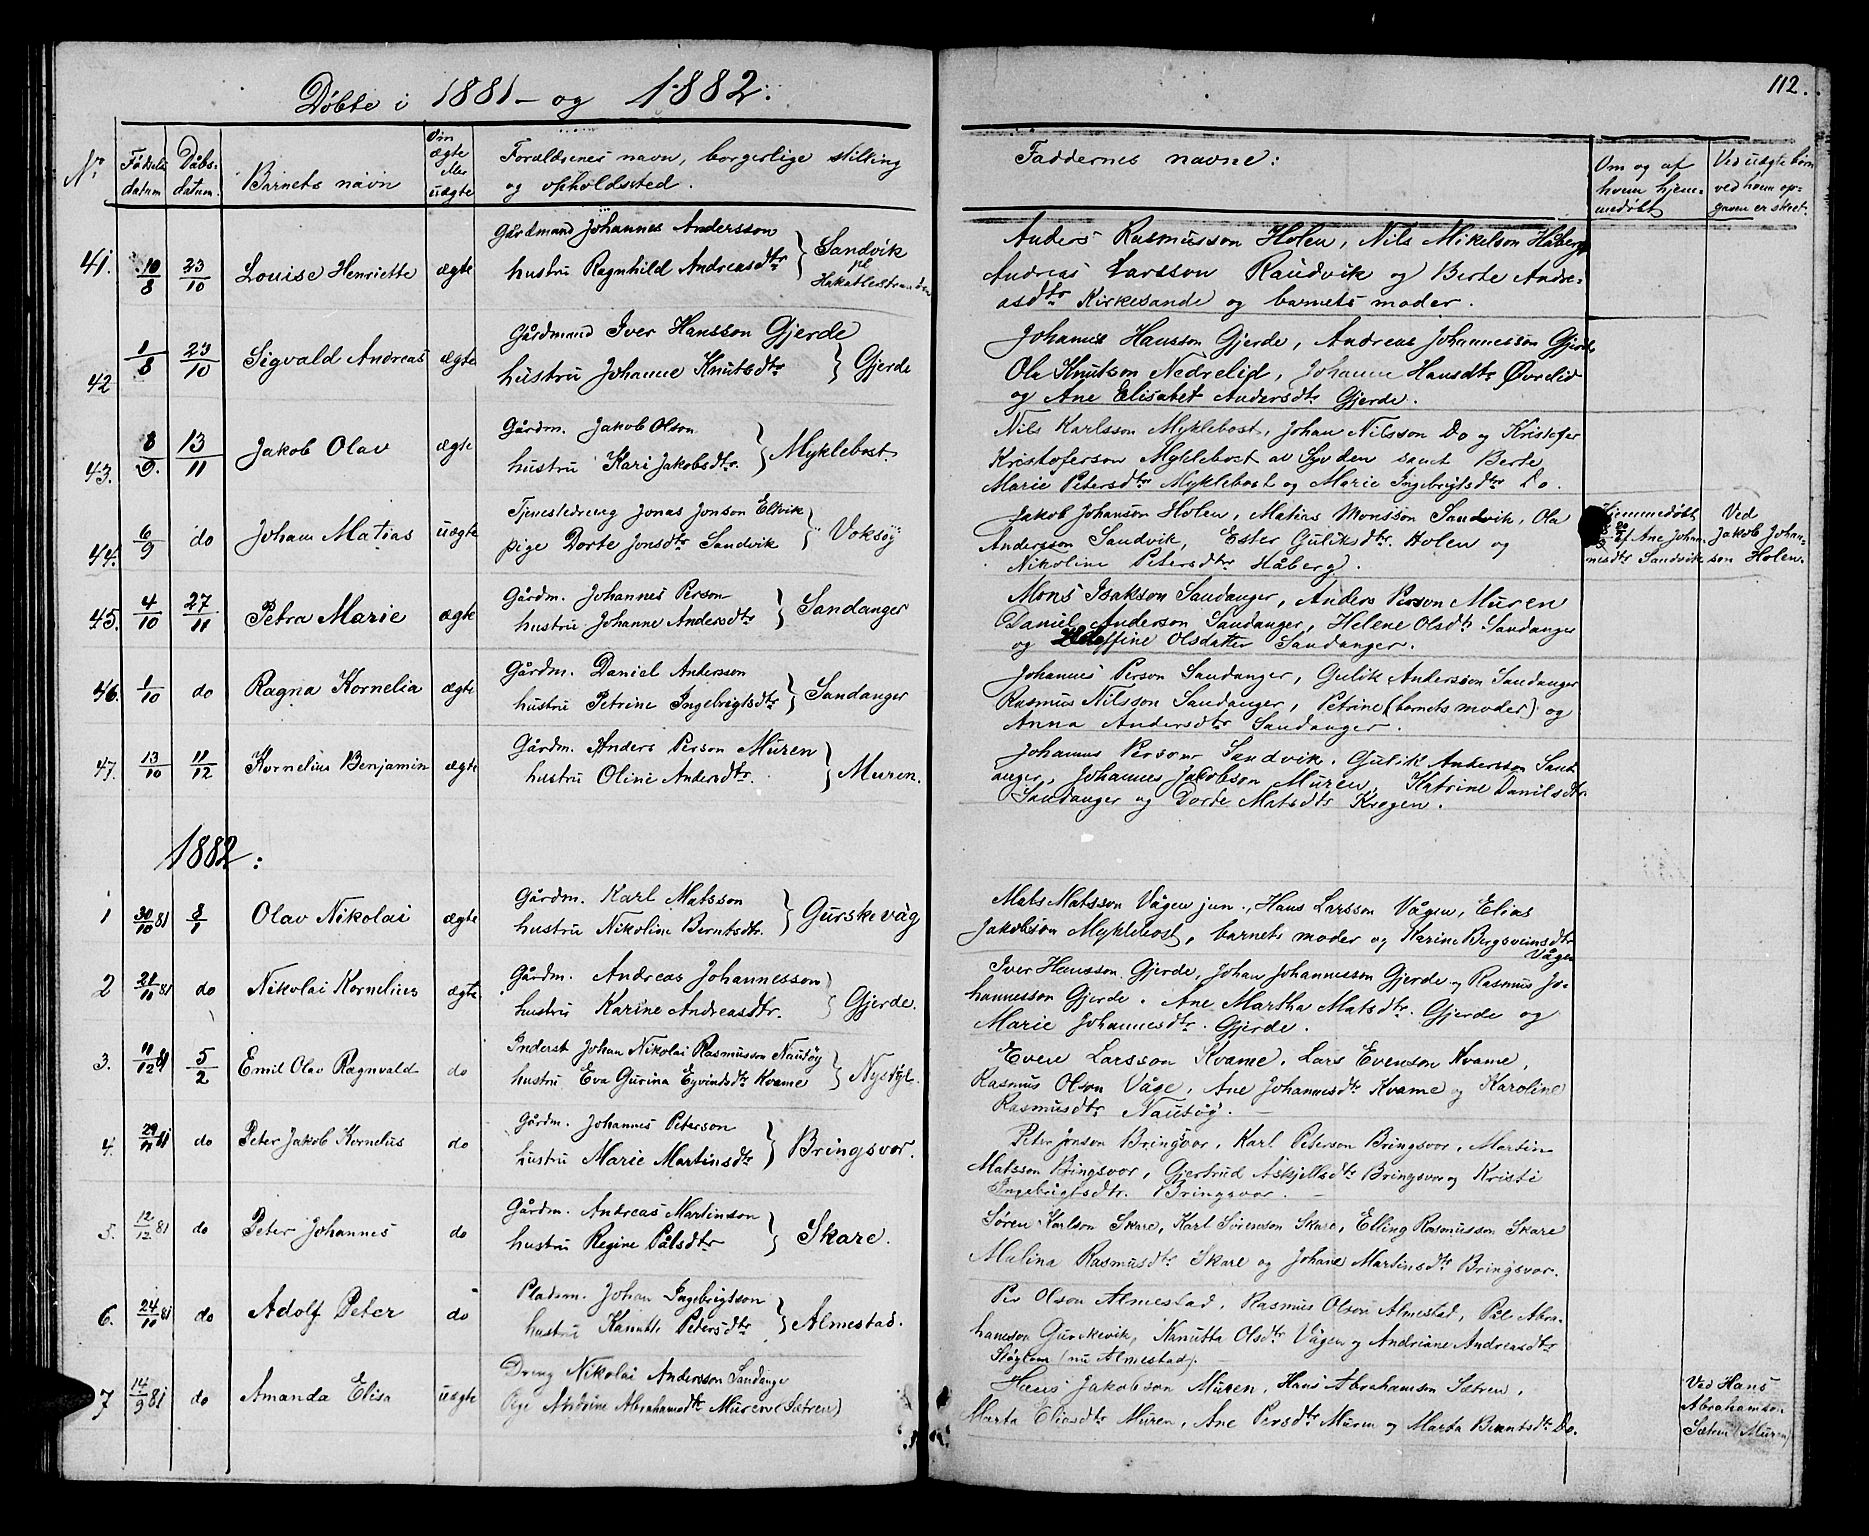 Døbte i 1881 - og 1882.
112.
Nr Fødsels datum Dåbs- datum. Barnets navn Om ægte eller uægte Forældrenes navn, borgerlige stilling og opholdssted.
Faddernes navne:
Om og af hvem hjem- medøbt
Ved uægte børn ved hvem op- gaven er skeet.
41. 10/8 23/10 Louise Henriette ægte Gårdmand Johannes Andersson
hustru Ragnhild Andreasdtr } Sandvik på Hakallestranden
Anders Rasmusson Holen, Nils Mikelson Håberg
Andreas Larsson Raudvik og Berte Andre-
asdtr Kirkesande og barnets moder.
42 1/8 23/10 Sigvald Andreas ægte Gårdmand Iver Hansson Gjerde
hustru Johanne Knutsdtr } Gjerde
Johannes Hansson Gjerde, Andreas Johannesson Gjerde
Ola Knutson Nedrelid, Johanne Hansdtr Øvrelid
og Ane Elisabet Andersdtr Gjerde.
43. 8/9. 13/11 Jakob Olav ægte Gårdm. Jakob Olson
hustru Kari Jakobsdtr. } Myklebost.
Nils Karlsson Myklebost, Johan Nilsson Do og Kristofer
Kristoferson Myklebost av Syvden samt Berte
Marie Petersdtr Myklebost og Marie Ingebrigtsdtr Do.
44. 6/9 do Johan Matias uægte Tjenestedreng Jonas Jonson Eltvik
pige Dorte Jonsdtr Sandvik } Voksøy
Jakob Johanson Holen, Matias Monsson Sandvik, Ola
Andersson Sandvik, Ester Guliksdtr. Holen og
Nikoline Petersdtr Håberg.
Hjemmedøbt af Ane Johan- nesdtr Sandvik
Ved Jakob Johan- son Holen.
45. 4/10 27/11 Petra Marie ægte Gårdm. Johannes Person
hustru Johanne Andersdtr } Sandanger
Mons Isakson Sandanger, Anders Person Muren
Daniel Anderson Sandanger, Helene Olsdtr Sandanger
og Olsdatter Sandanger.
46. 1/10 do Ragna Kornelia ægte Gårdm. Daniel Andersson
hustru Petrine Ingebrigtsdtr } Sandanger
Johannes Person Sandanger, Gulik Andersson Sandanger
Rasmus Nilsson Sandanger, Petrine (barnets moder) og
Anna Andersdtr Sandanger.
47. 13/10 11/12 Kornelius Benjamin ægte Gårdm. Anders Person Muren
hustru Oline Andersdtr. } Muren.
Johannes Person Sandvik, Gulik Andersson Sand-
anger, Johannes Jakobson Muren, Katrine Danilsdtr.
Sandanger og Dorde Matsdtr Krogen.
1882:
1 30/10 81 8/1 Olav Nikolai ægte Gårdm. Karl Matsson
hustru Nikoline Berntsdtr. } Gurskevåg
Mats Matsson Vågen jun., Hans Larsson Vågen, Elias
Jakobson Myklebost, barnets moder og Karine Bergsveinsdtr
Vågen
2 21/11 81 do Nikolai Kornelius ægte Gårdm. Andreas Johannesson
hustru Karine Andreasdtr. } Gjerde.
Iver Hansson Gjerde, Johan Johannesson Gjerde og Rasmus Jo-
hannesson Gjerde. Ane Martha Matsdtr. Gjerde og
Marie Johannesdtr. Gjerde.
3. 11/12 81 5/2 Emil Olav Ragnvald do Inderst Johan Nikolai Rasmusson Nautøy
hustru Eva Gurina Eyvindsdtr Kvame } Nystøyl.
Even Larsson Kvame, Lars Evenson Kvame,
Rasmus Olson Våge, Ane Johannesdtr Kvame og Karoline
Rasmusdtr Nautøy. —
4. 29/11 81 do Peter Jakob Kornelius do Gårdm. Johannes Peterson
hustru Marie Martinsdtr } Bringsvor.
Peter Jonson Bringsvor, Karl Peterson Bringsvor, Martin
Matsson Bringsvor, Gjertrud Askjellsdtr Bringsvor og Kristi
Ingebrigtsdtr. Bringsvor. —
5. 12/12 81 do Peter Johannes do Gårdm. Andreas Martinson
hustru Regine Pålsdtr } Skare.
Søren Karlson Skare, Karl Sørenson Skare, Elling Rasmusson Skare
Malina Rasmusdtr Skare og Johane Martinsdtr Bringsvor.
6. 24/10 81 do Adolf Peter do Pladsm. Johan Ingebrigtson
hustru Kanutte Petersdtr } Almestad.
Per Olson Almestad, Rasmus Olson Almestad, Pål Abra-
hamson Gurskevik, Kanutta Olsdtr Vågen og Andriane Andreasdtr
(nu Almestad).
7 14/9 81 do Amanda Elisa uægte Dreng Nikolai Andersson Sandanger
Pige Abrahamsdtr Muren (Sætren)
Hans Jakobson Muren, Hans Abrahamson Sætren,
Marta Eliasdtr Muren, Ane Persdtr Muren og Marta Berntsdtr Do.
Ved Hans Abrahamson Sætren (Muren)